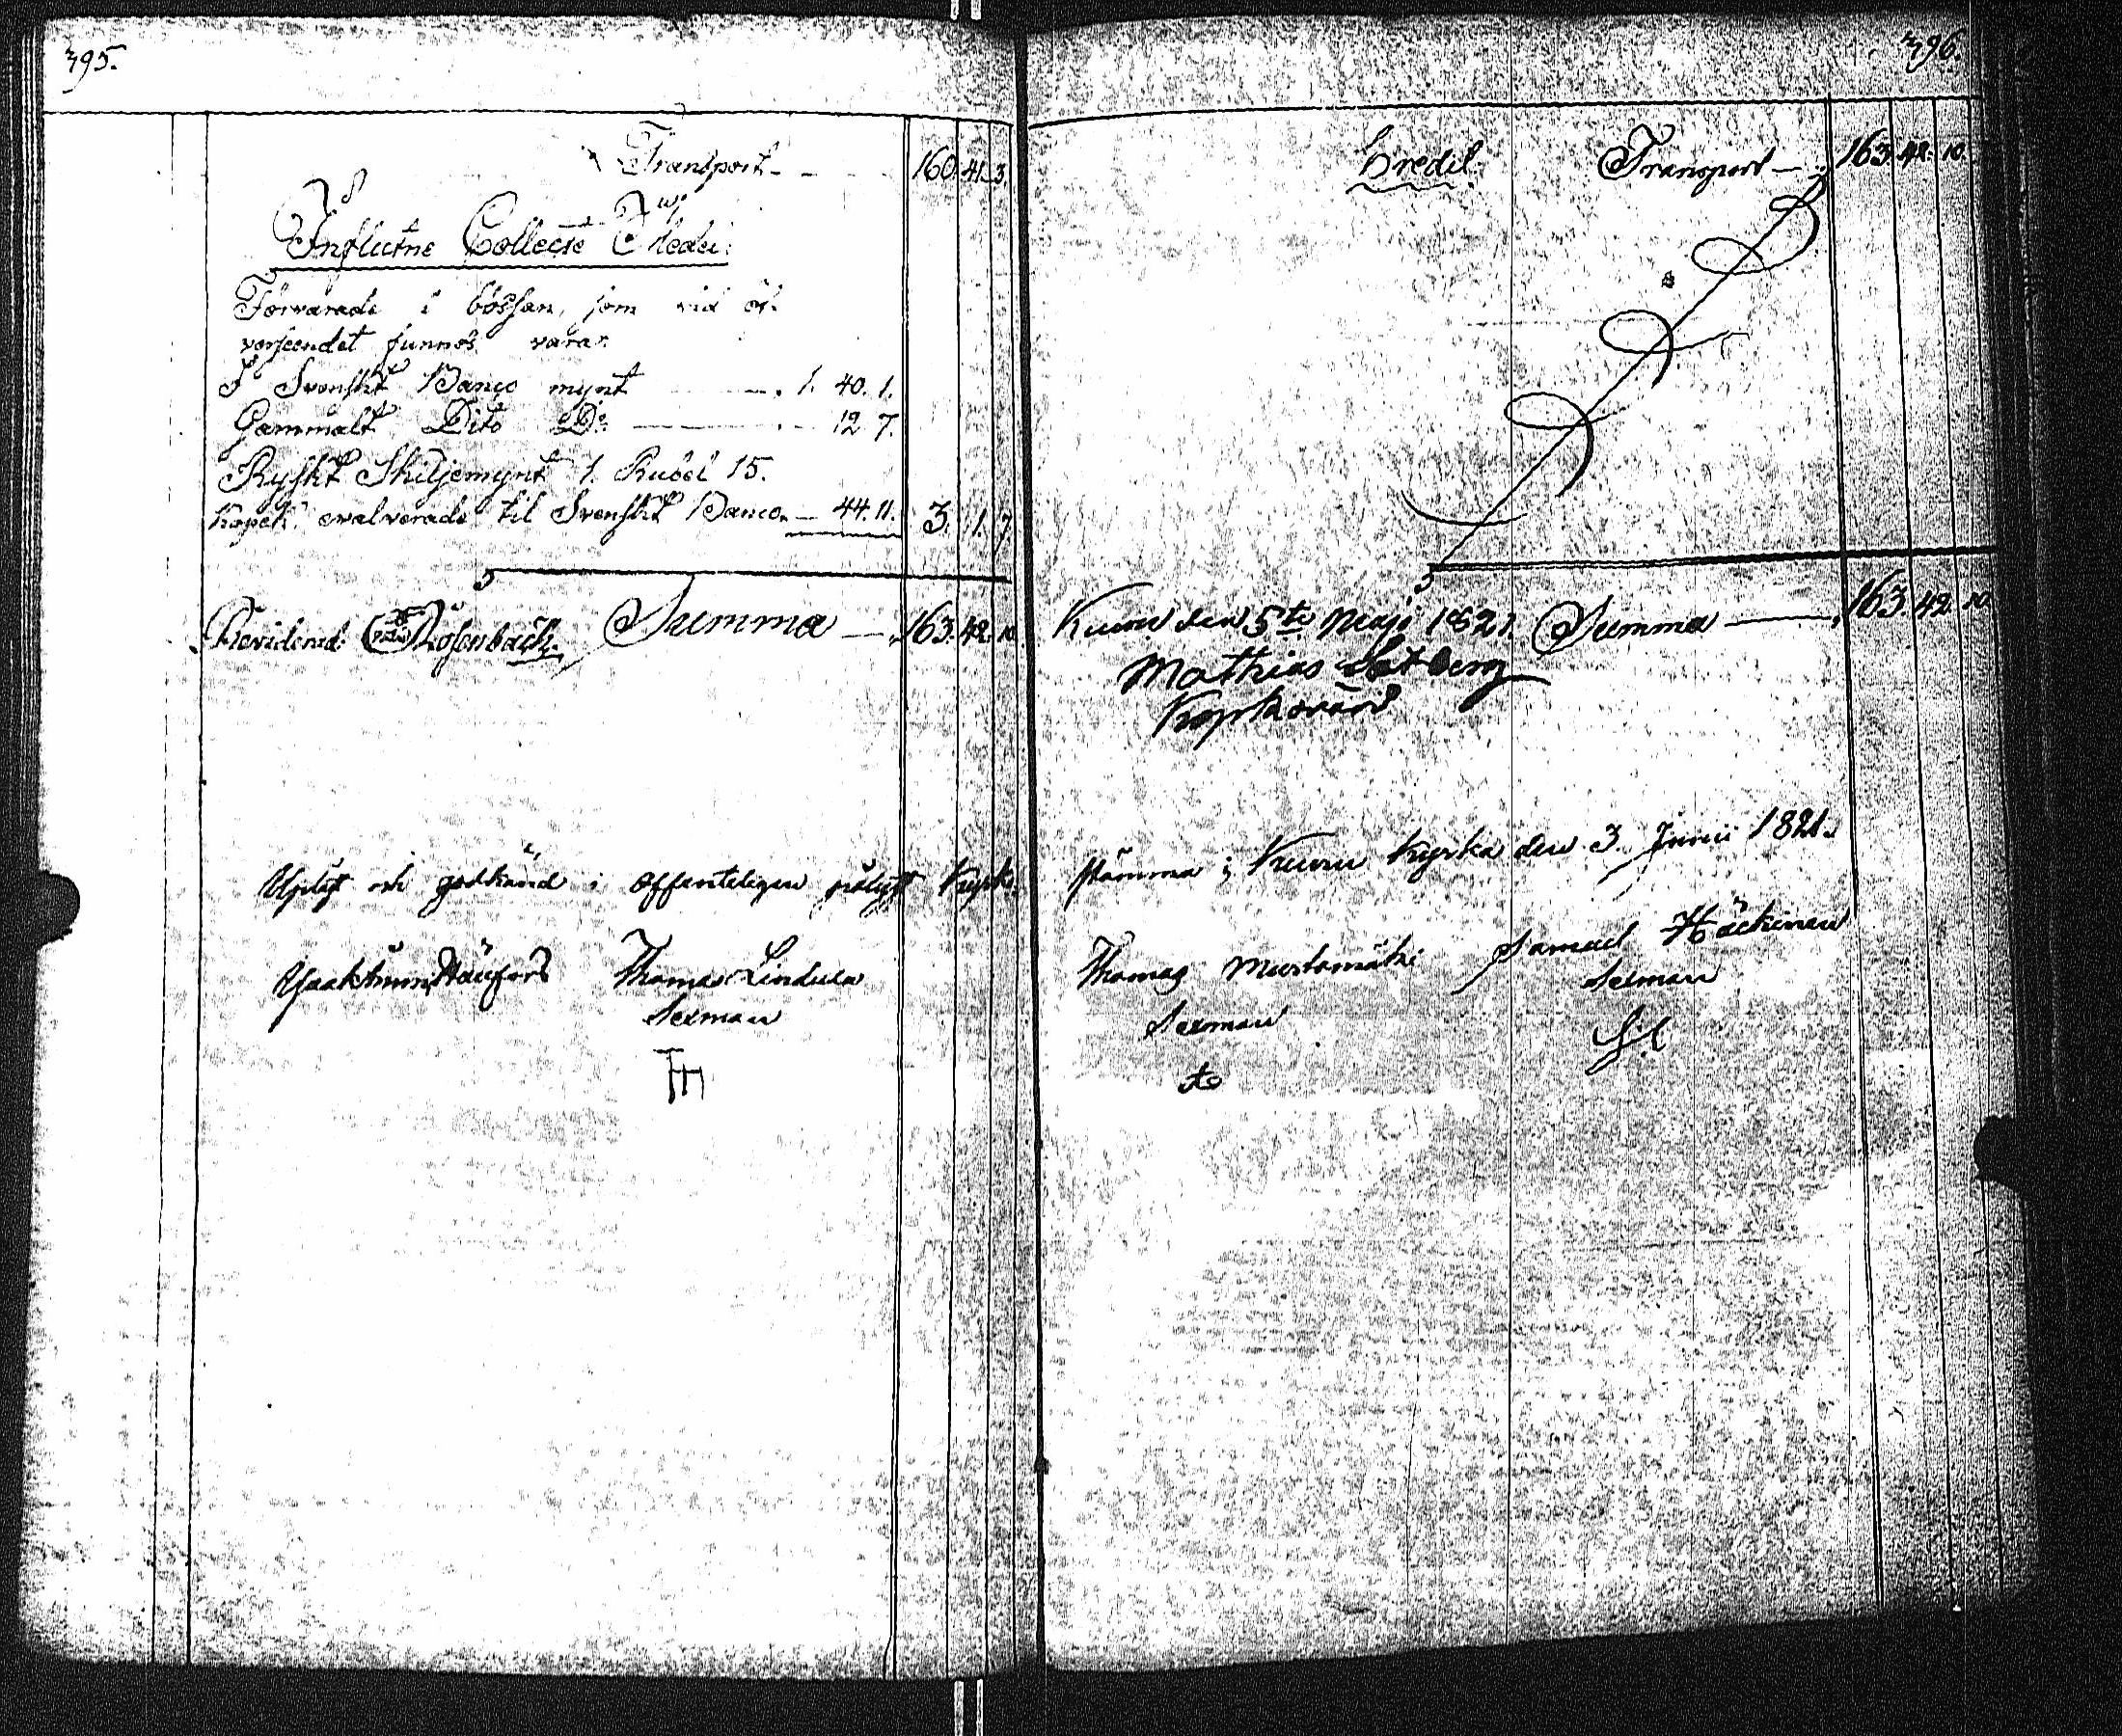 395.
Transport - - - 160. 41. 3.
Influtne Collect Medel.
Förvarade i bössan, som vid öf-
verseendet funnos vara:
I Svenskt Banco mynt - - . 1. 40. 1.
Gammalt Dito Do - - - 12 7.
Ryskt Skiljemynt 1. Rubel 15.
Kopek. evalverade til Svenskt Banco. - 44. 11. 3. 1. 7
Reviderad. Rosenbäck. Summa - 163. 42. 10.
Uplyst och godkänd i offenteligen pålyst Kyrko
Thomas Lindula
Sexman
TH
396.
Credit. Transport - 163. 42. 10.
den 5te Maji 1821. Summa - 163. 42. 10.
Mathias
stämma i Kyrka den 3 Junii 1821.
Thomas Mustamäki Samuel Häckinen
Sexman Sexman